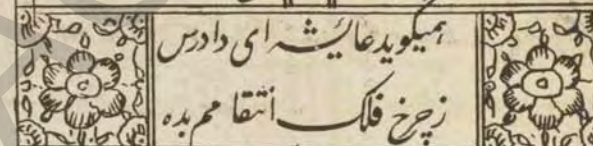 همیگوید عایشه ای دادرس
زچرخ فلک انتقامم بده